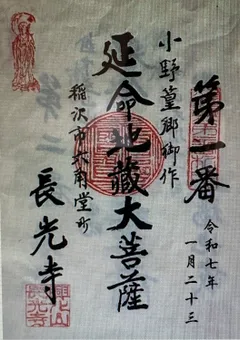 第一番
令和七年
一月二十三
小野篁卿御作
延命地蔵大菩薩
稲沢市六角堂町
長光寺